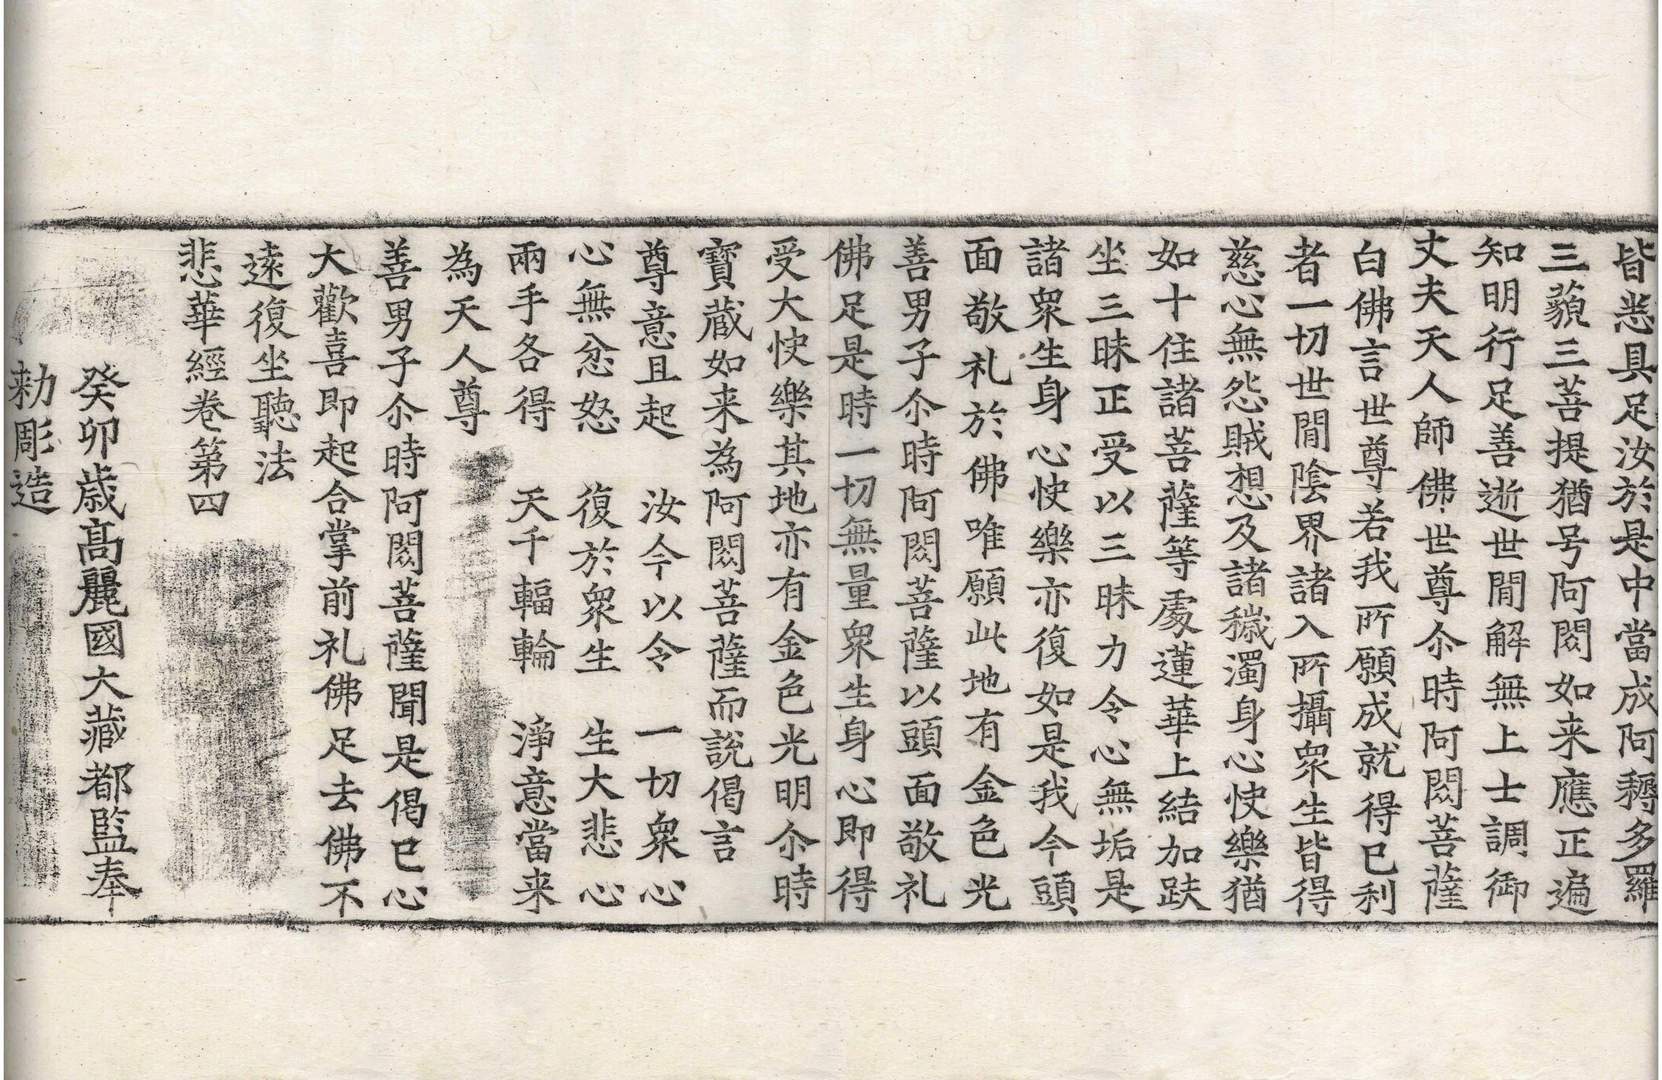 皆悉具足汝於是中當成阿耨多羅
三藐三菩提猶号阿閦如来應正遍
知明行足善逝世閒解無上士調御
丈夫天人師佛世尊尒時阿閦菩薩
白佛言世尊若我所願成就得已利
者一切世閒陰界諸入所攝衆生皆得
慈心無怨賊想及諸穢濁身心快樂猶
如十住諸菩薩等處蓮華上結加趺
坐三昧正受以三昧力令心無垢是
諸衆生身心快樂亦復如是我今頭
面敬礼於佛唯願此地有金色光
善男子尒時阿閦菩薩以頭面敬礼
佛足是時一切無量衆生身心即得
受大快樂其地亦有金色光明尒時
寶蔵如来為阿閦菩薩而說偈言
尊意且起　汝今以令　一切衆心
心無忿怒　復於衆生　生大悲心
兩手各得　天千輻輪　淨意當来
為天人尊
善男子尒時阿閦菩薩聞是偈已心
大歡喜即起合掌前礼佛足去佛不
遠復坐聽法
悲華經卷第四
癸卯歲高麗國大藏都監奉
勑彫造